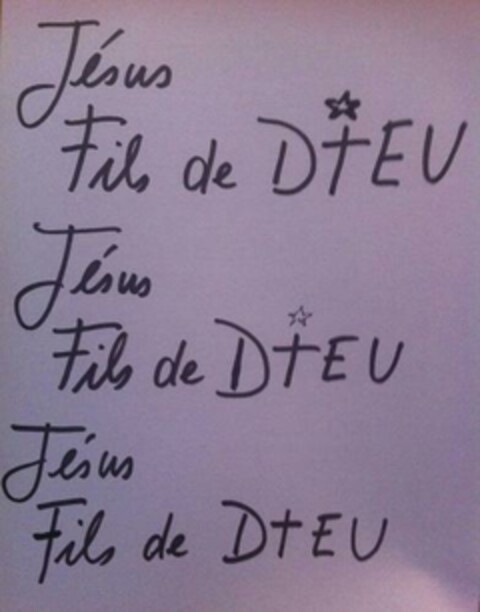 Jésus
Fils de D†EU
Jésus
Fils de D†EU
Jésus
Fils de D†EU